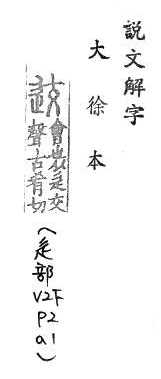 説文解字
大徐本
會也从辵交
聲古肴切
(辵部V2下P2a1)